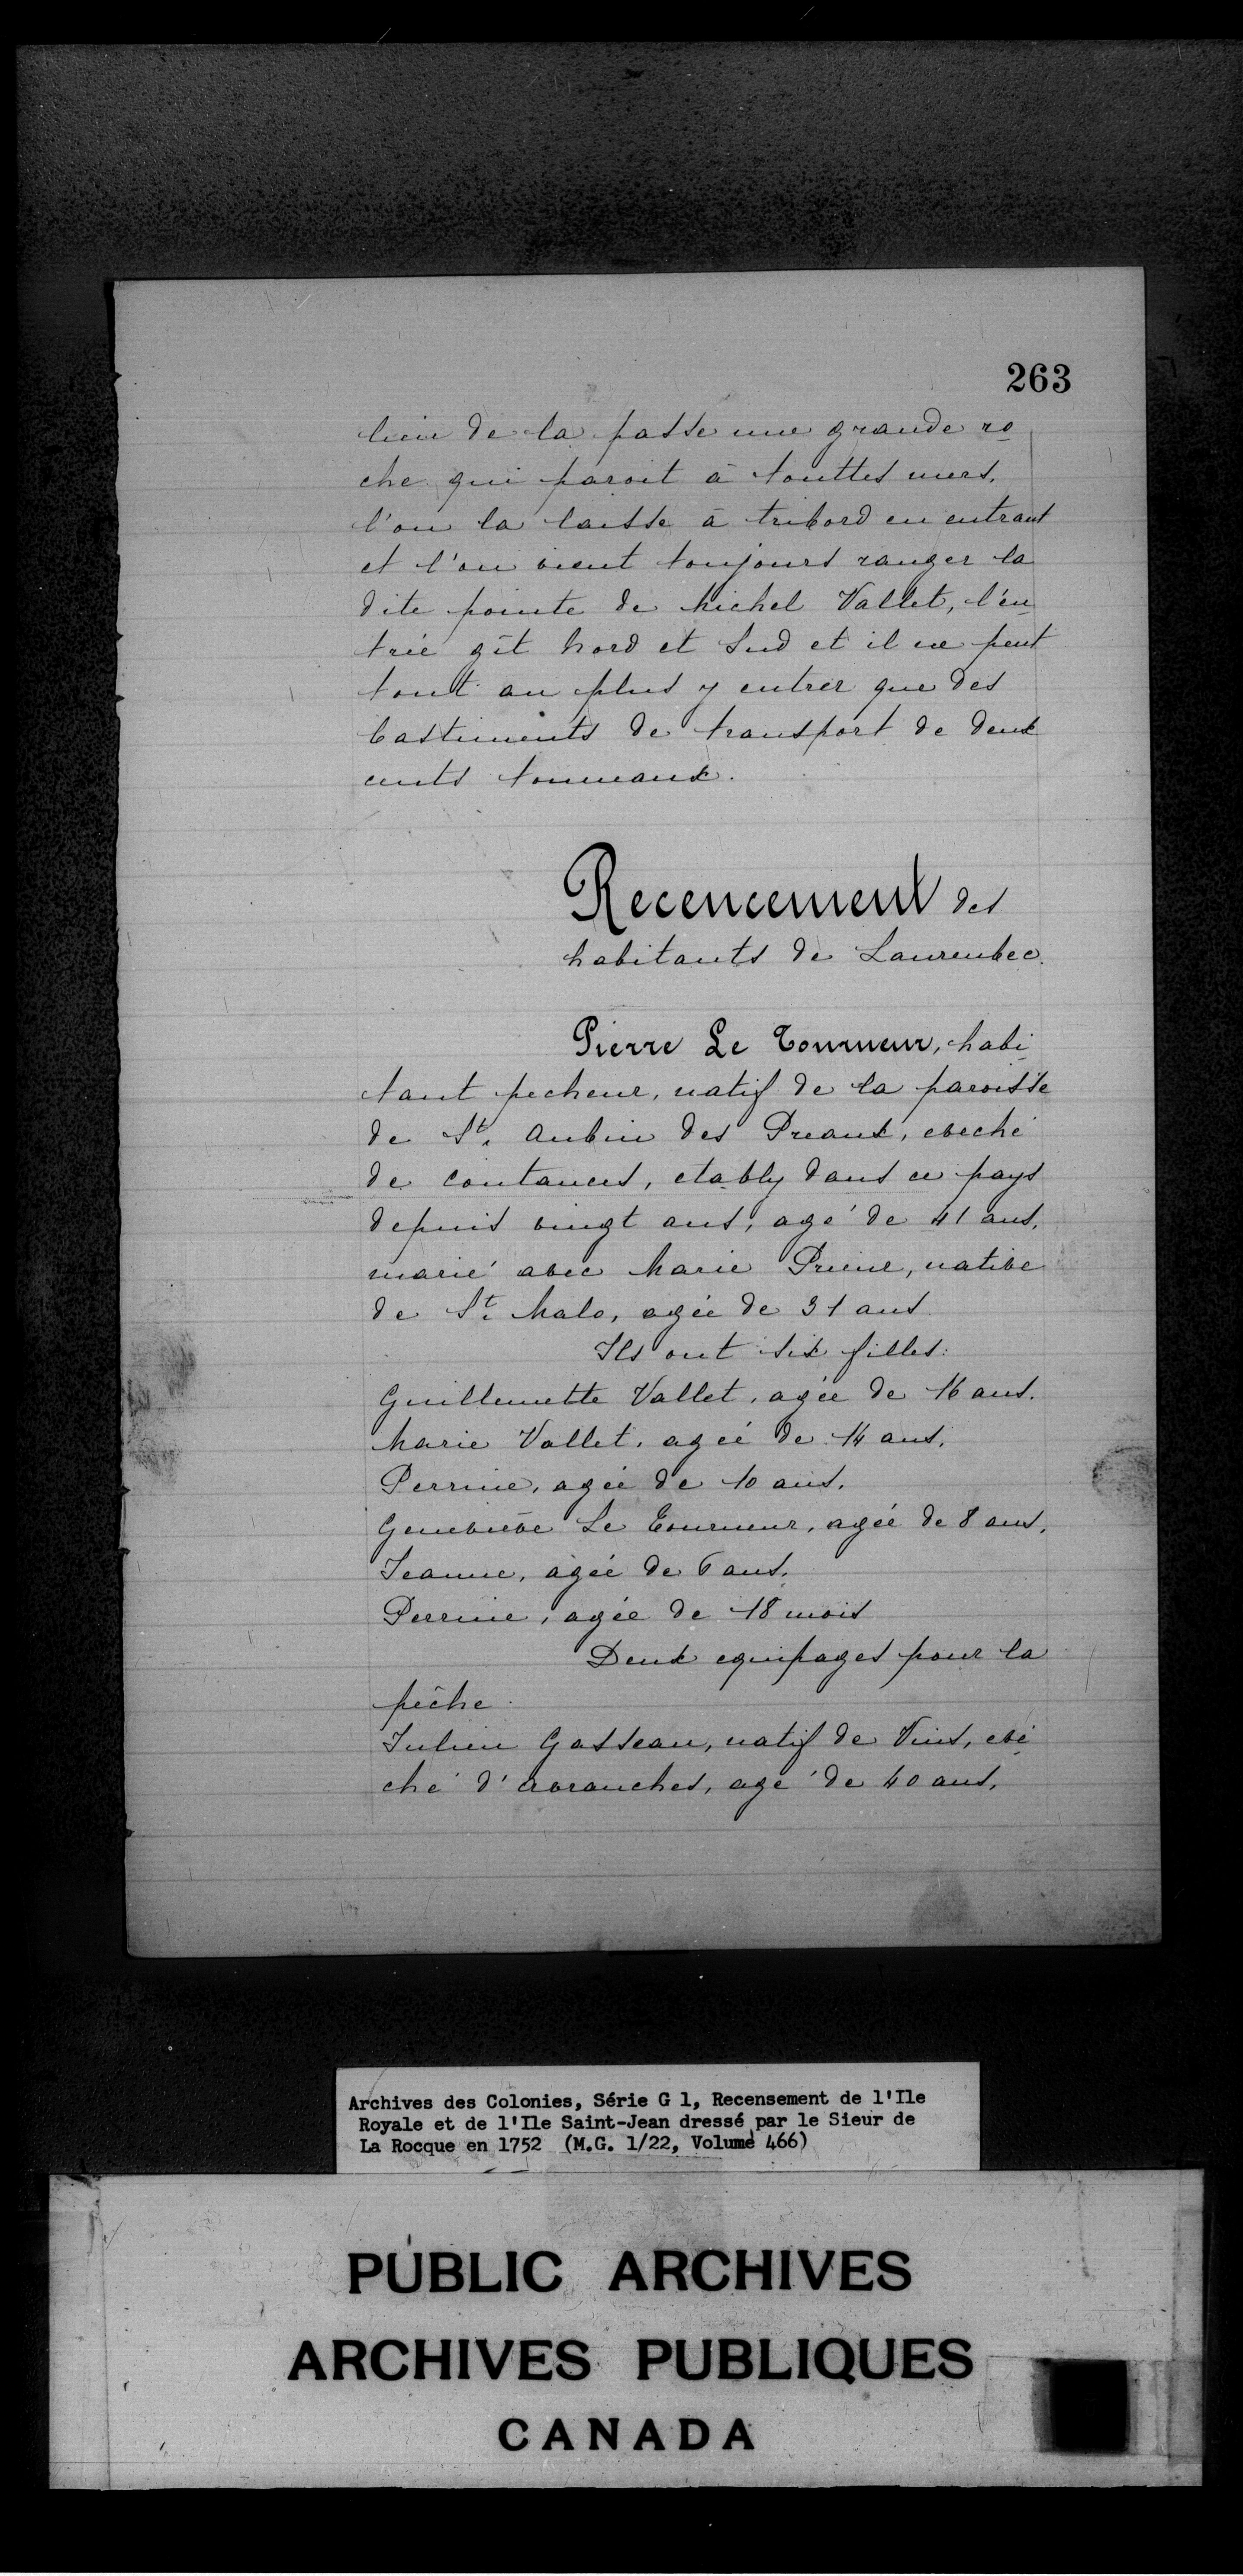 263
lieu de la passe une grande ro
che qui paroit à touttes mers,
l'on la laisse à tribord en entrant
et l'on vient toujours ranger la
dite pointe de Michel Vallet, l'en
trée gît Nord et Sud et il ne peut
tout au plus y entrer que des
bastiments de transport de deux
cents tonneaux.
Recencement des
habitants de Laurenbec.
Pierre Le Tourneur, habi
tant pecheur, natif de la paroisse
de St. Aubin des Preaux, eveché
de Coutances, etably dans ce pays
depuis vingt ans, agé de 41 ans,
marié avec Marie Prime, native
de St. Malo, agée de 31 ans
Ils ont six filles:
Guillemette Vallet, agée de 16 ans.
Marie Vallet, ageé de 14 ans,
Perrine, agée de 10 ans.
Genevieve Le Tourneur, ageé de 8 ans,
Jeanne, ageé de 6 ans,
Perrine, agée de 18 mois
Deux equipages pour la
pêche.
Julien Gasseau, natif de Vins, evé
ché d'Avranches, agé de 40 ans,
Archives des Colonies, Série G 1, Recensement de l'Ile
Royale et de l'Ile Saint-Jean dressé par le Sieur de
La Rocque en 1752 (M.G. 1/22, Volume 466)
PUBLIC ARCHIVES
ARCHIVES PUBLIQUES
CANADA